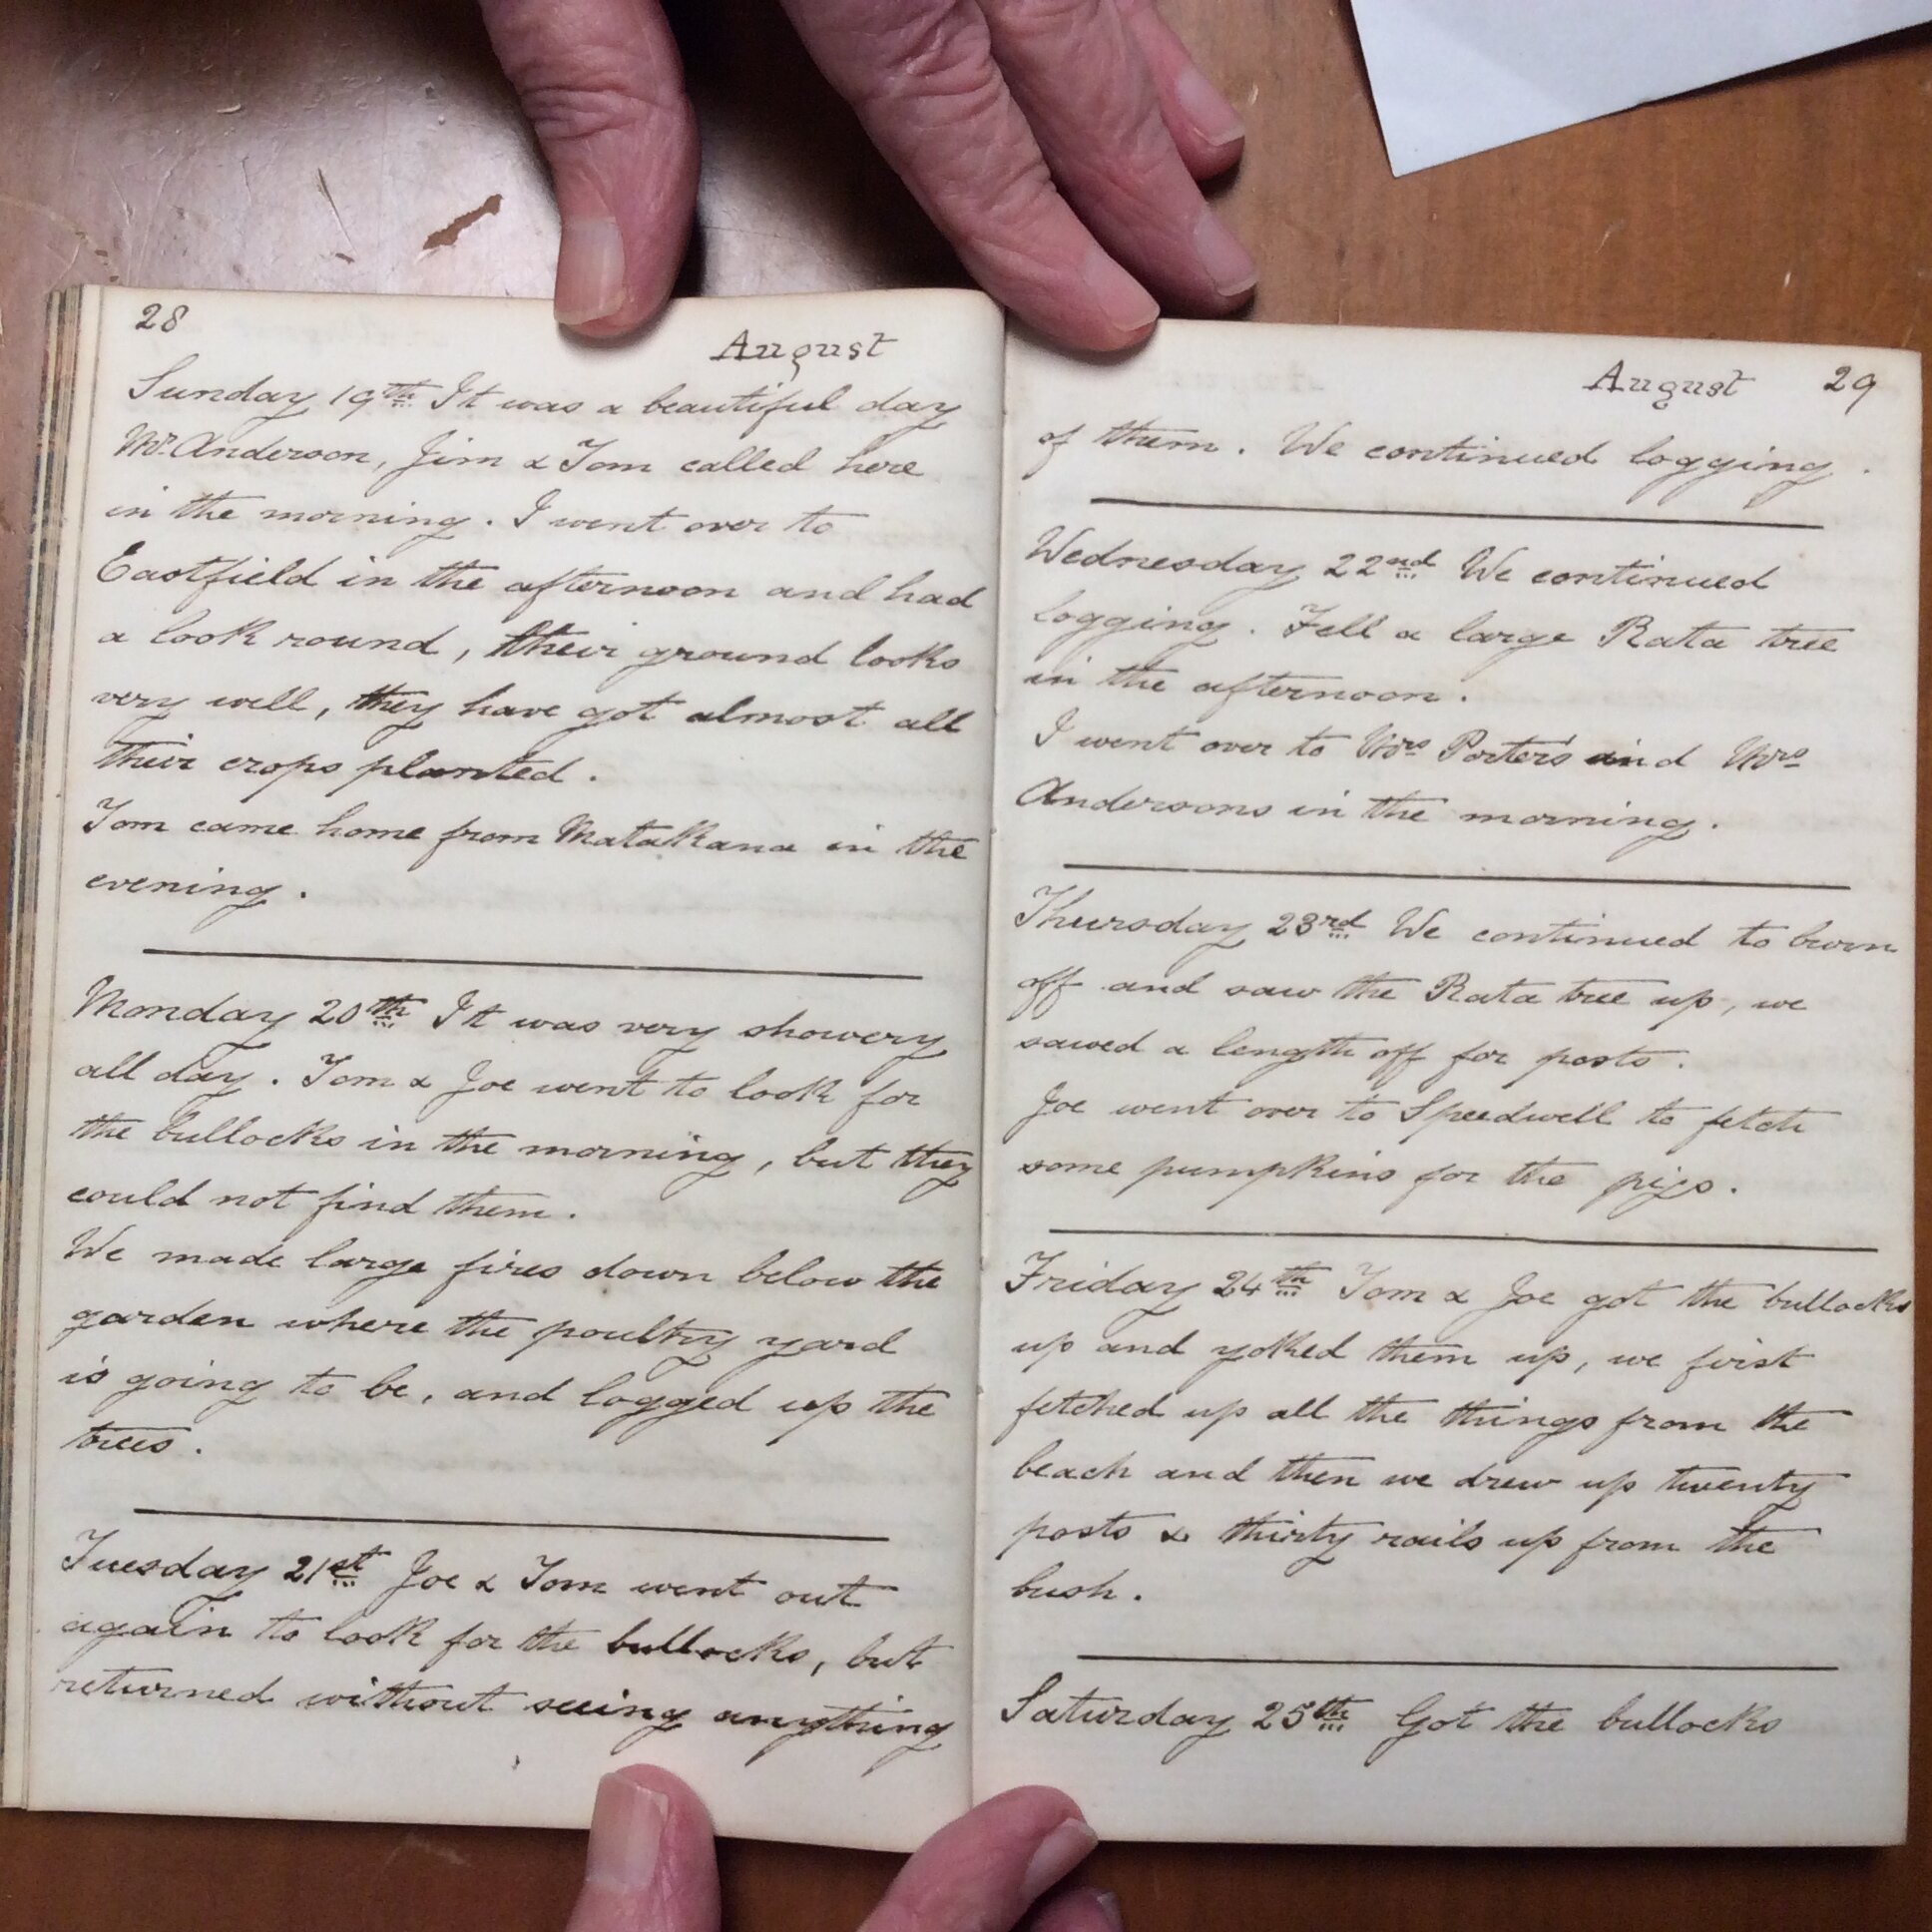 28
August
Sunday 19th It was a beautiful day
Mr. Anderson, Jim & Tom called here
in the morning. I went over to
Eastfield in the afternoon and had
a look round, their ground looks
very well, they have got almost all
their crops planted.
Tom came home from Matakana in the
evening.
Monday 20th It was very showery
all day. Tom & Joe went to look for
the bullocks in the morning, but they
could not find them.
We made large fires down below the
garden where the poultry yard
is going to be, and logged up the
trees.
Tuesday 21st Joe & Tom went out
again to look for the bullocks, but
returned without seeing anything
August 29
of them. We continued logging.
Wednesday 22nd We continued
logging. Fell a large Rata tree
in the afternoon.
I went over to Mrs Porter's and Mrs
Andersons in the morning.
Thursday 23rd We continued to burn
off and saw the Rata tree up, we
sawed a length off for posts.
Joe went over to Speedwell to fetch
some pumpkins for the pigs.
Friday 24th Tom & Joe got the bullocks
up and yoked them up, we first
fetched up all the things from the
beach and then we drew up twenty
posts & thirty rails up from the
bush.
Saturday 25th Got the bullocks